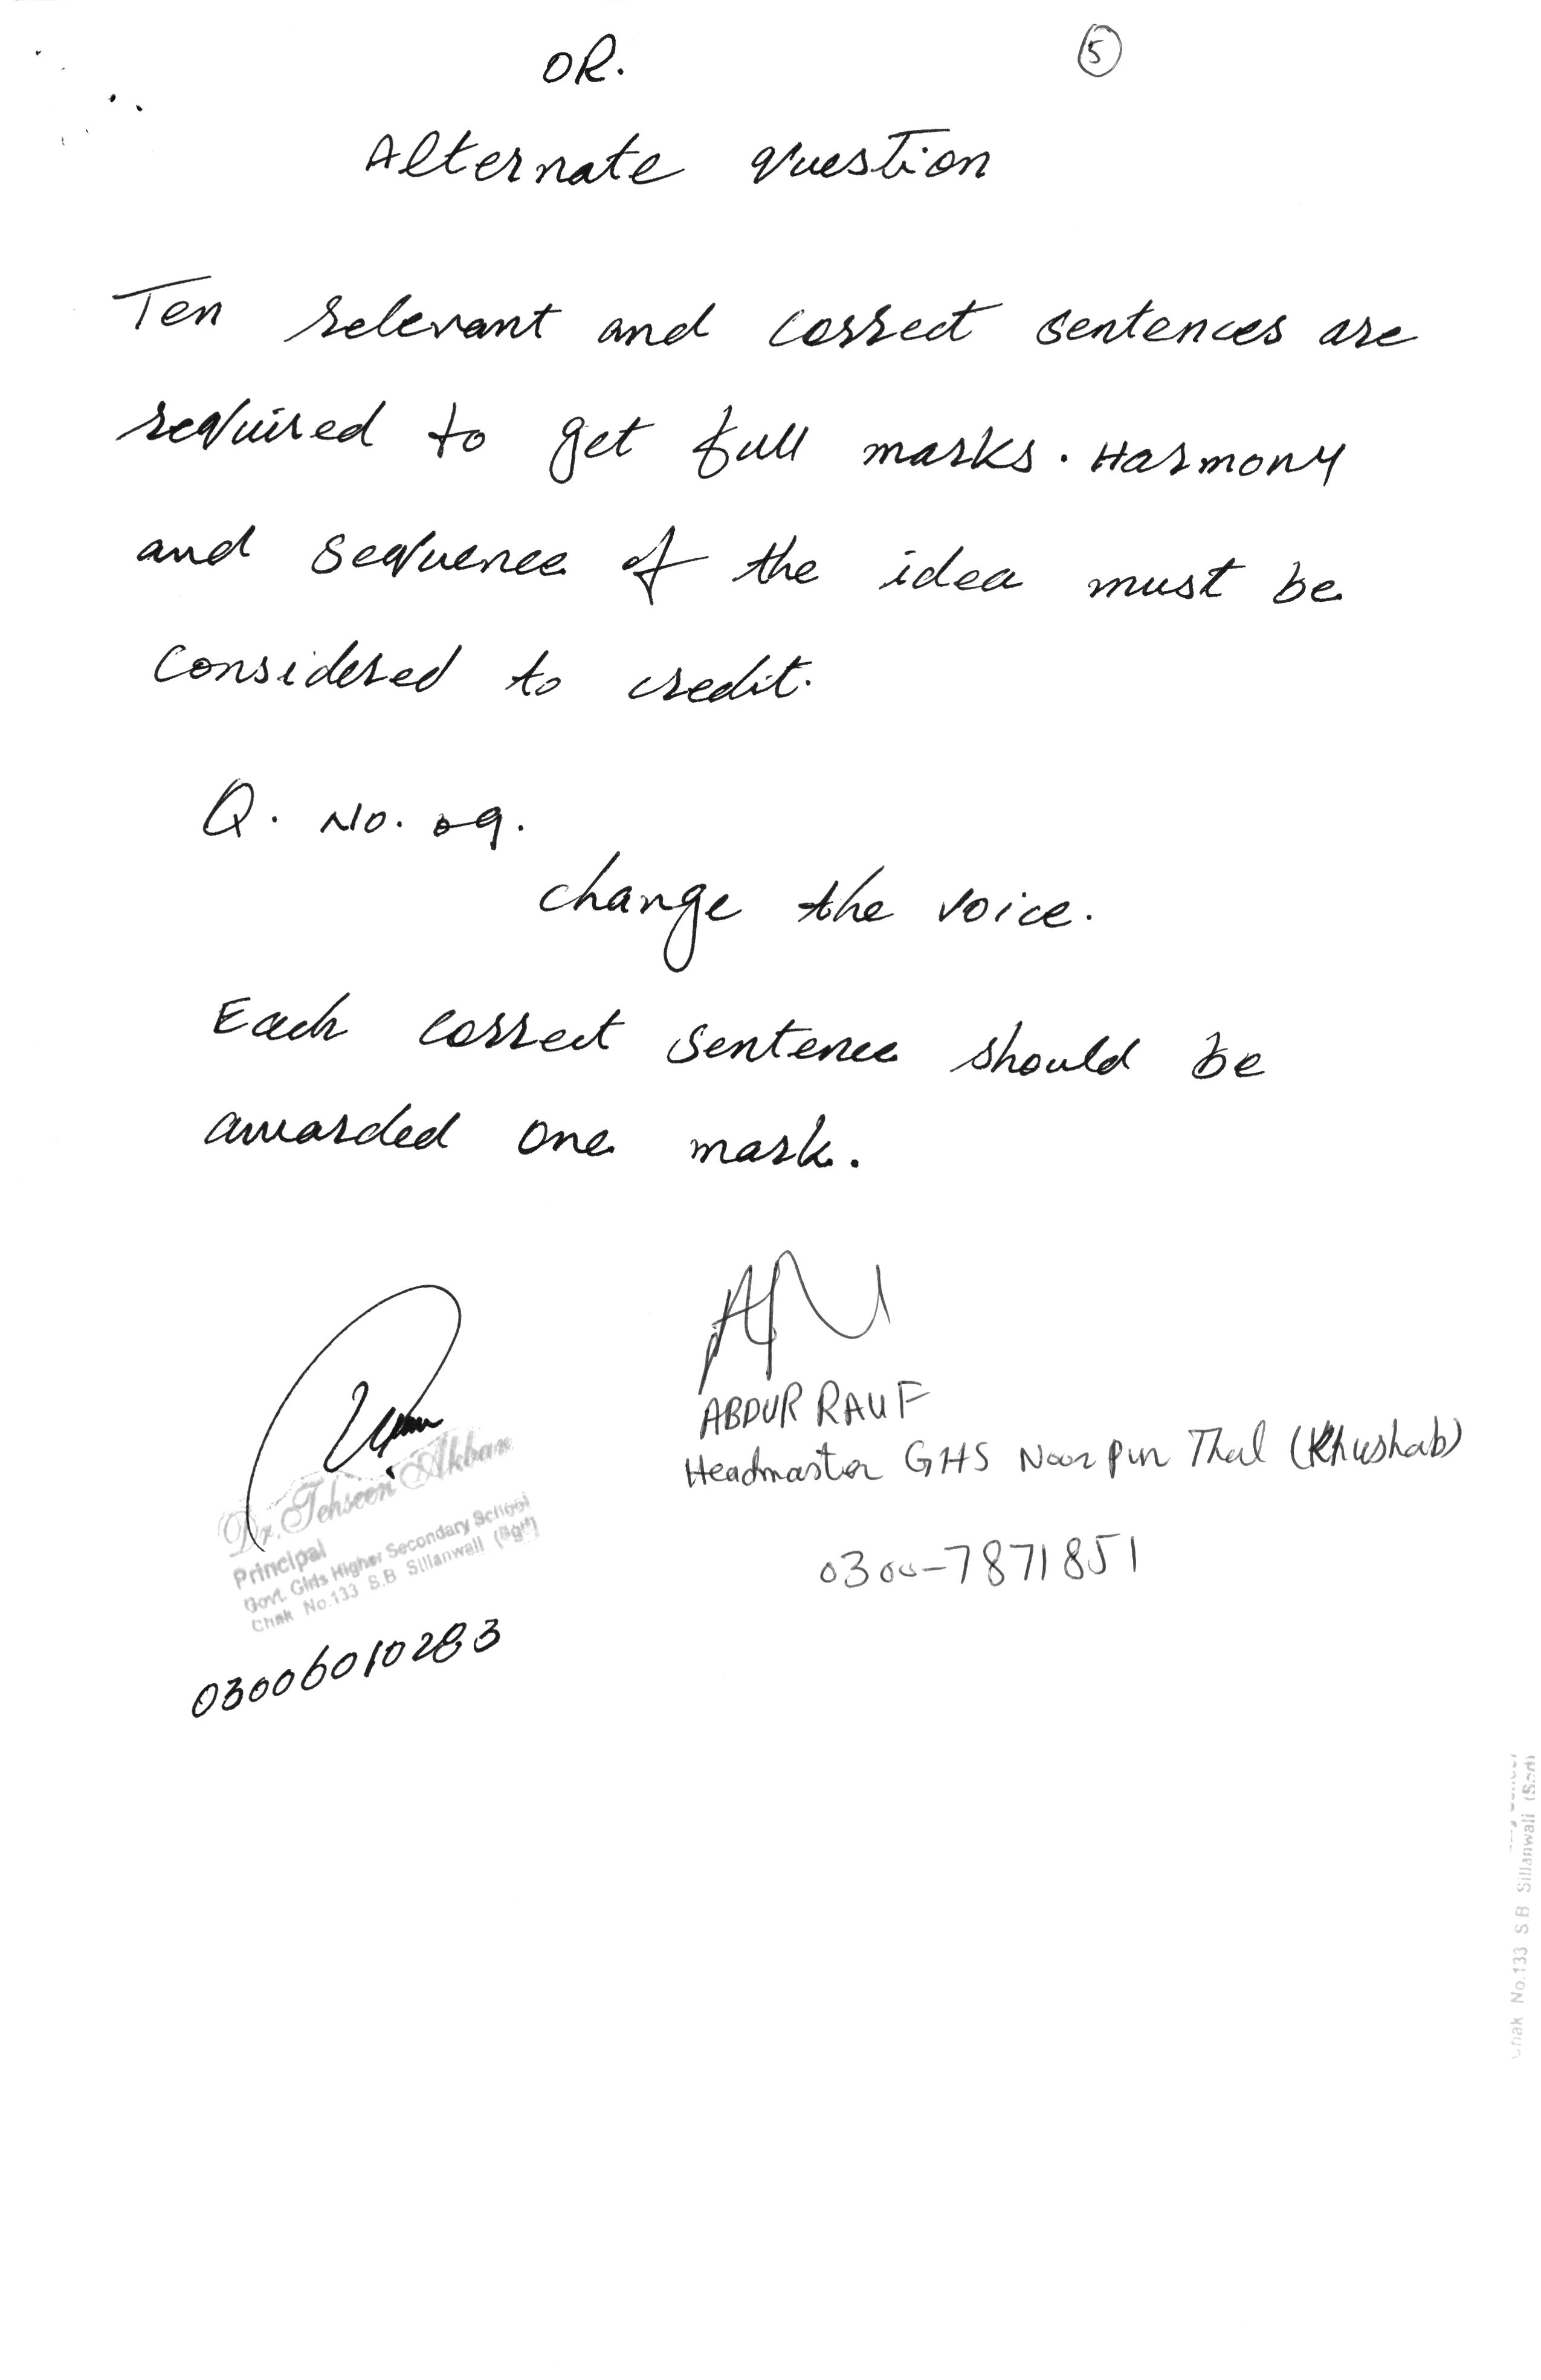 OR.
5
Alternate question
Ten relevant and correct sentences are
required to get full marks. Harmony
and sequence of the idea must be
considered to credit.
Q. No. 09.
change the voice.
Each correct sentence should be
awarded one mark.
ABDUR RAUF
Headmaster GHS Noor pur Thal (Khushab)
0300-7871851
Dr. Tehseen Akbar
Principal
Govt. Girls Higher Secondary School
Chak No.133 S.B Sillanwali (Sgd)
03006010283
Chak No.133 S.B Sillanwali (Sgd)